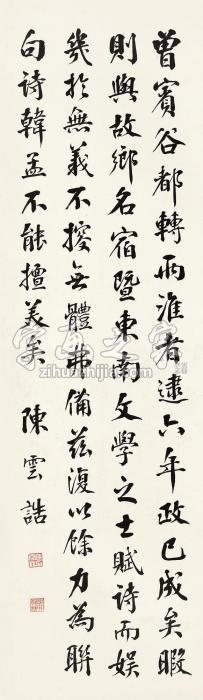 曾賓谷都轉兩淮者逮六年政已成矣暇
則與故鄉名宿暨東南文學之士賦詩而娱
幾於無義不搜無體弗備兹復以餘力為聯
句詩韓孟不能擅美矣
陳雲誥
字画之家
zihuazhijia.com